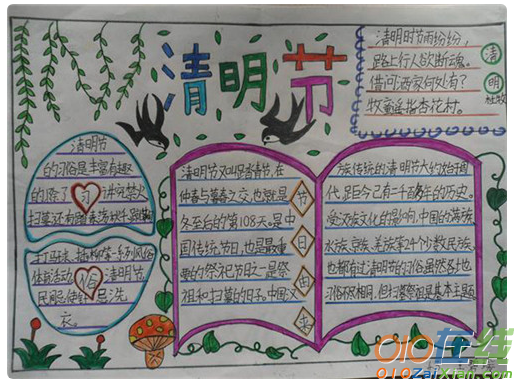 清明节
清明时节雨纷纷,
路上行人欲断魂。
借问酒家何处有?
牧童遥指杏花村。
清
明
杜牧
清明节
的习俗是丰富有趣
的,除了
习
讲究禁火
扫墓,还有踏青荡秋千、蹴鞠
打马球、插柳等一系列风俗
体育活动。
俗
清明节
民间
衣。
清明节又叫踏青节,在
仲春与暮春之交,也就是
冬至后的第108天。是中
国传统节日,也是最重
要的祭祀节日之一是祭
祖和扫墓的日子。中国汉
节
日
由
来
族传统的清明节大约始于周
代,距今已有二千多年的历史。
受汉族文化的影响,中国的满族
水族、京族、羌族等24个少数民族,
也都有过清明节的习俗虽然各地
习俗不相同,但扫墓祭祖是基本主题
010在线
010ZaiXian.com